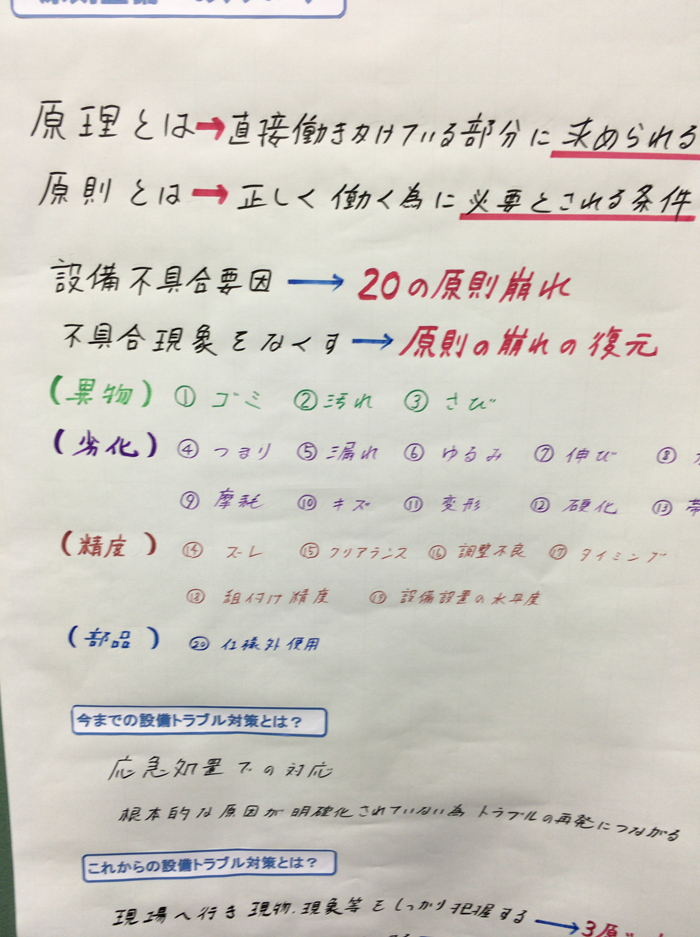 原理とは→直接働きかけている部分に求められる
原則とは→正しく働く為に必要とされる条件
設備不具合要因→20の原則崩れ
不具合現象をなくす→原則の崩れの復元
(異物) ①ゴミ ②汚れ ③さび
(劣化) ④つまり ⑤漏れ ⑥ゆるみ ⑦伸び ⑧
⑨摩耗 ⑩キズ ⑪変形 ⑫硬化 ⑬帯
(精度) ⑭ズレ ⑮クリアランス ⑯調整不良 ⑰タイミング
⑱組付け精度 ⑲設備設置の水平度
(部品) ⑳仕様外使用
今までの設備トラブル対策とは？
応急処置での対応
根本的な原因が明確化されていない為トラブルの再発につながる
これからの設備トラブル対策とは？
現場へ行き現物、現象等をしっかり把握する→3原